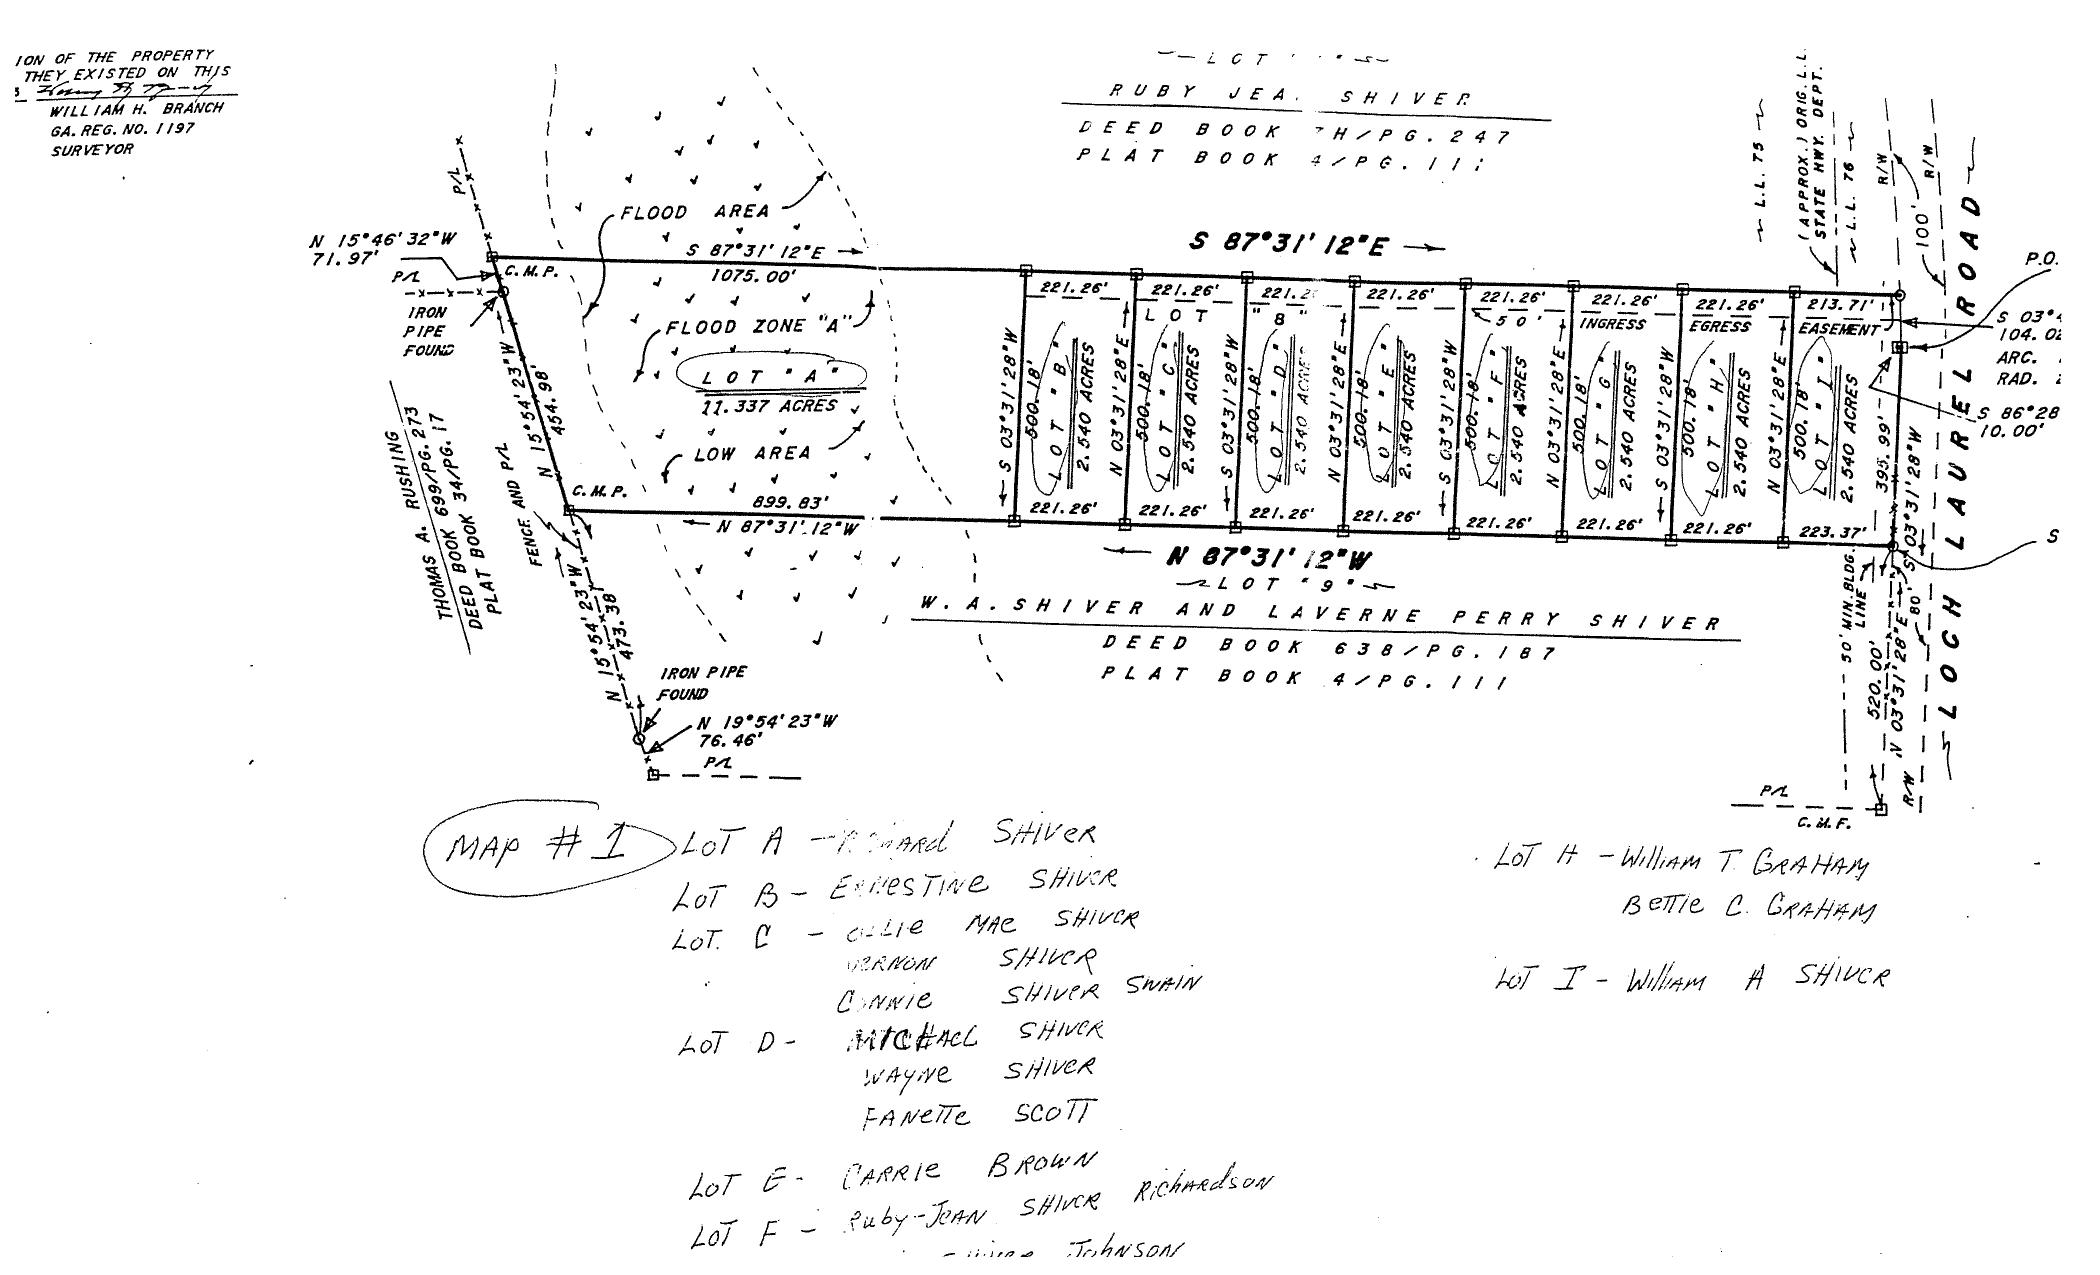 ION OF THE PROPERTY
THEY EXISTED ON THIS
WILLIAM H. BRANCH
GA. REG. NO. 1197
SURVEYOR
LOT
RUBY JEA. SHIVER
DEED BOOK 7H/PG. 247
PLAT BOOK 4/PG. 111
~ L.L. 75 ~
(APPROX.) ORIG. L.L.
STATE HWY. DEPT.
~ L.L. 76 ~
R/W
100'
R/W
~ LOCH LAUREL ROAD ~
P/L
FLOOD AREA
N 15°46'32"W
71.97'
P/L
C.M.P.
IRON
PIPE
FOUND
S 87°31'12"E
1075.00'
S 87°31'12"E
P.O.
FLOOD ZONE "A"
LOT "A"
11.337 ACRES
LOW AREA
C.M.P.
899.83'
N 87°31'12"W
N 15°54'23"W
454.98'
FENCE AND P/L
THOMAS A. RUSHING
DEED BOOK 699/PG. 273
PLAT BOOK 34/PG. 17
N 15°54'23"W
473.38'
IRON PIPE
FOUND
N 19°54'23"W
76.46'
P/L
221.26' 221.26' 221.2 221.26' 221.26' 221.26' 221.26' 213.71'
LOT "8" 50' INGRESS EGRESS EASEMENT
S 03°31'28"W
500.18'
LOT "B"
2.540 ACRES
N 03°31'28"E
500.18'
LOT "C"
2.540 ACRES
S 03°31'28"W
500.18'
LOT "D"
2.540 ACRES
N 03°31'28"E
500.18'
LOT "E"
2.540 ACRES
S 03°31'28"W
500.18'
LOT "F"
2.540 ACRES
N 03°31'28"E
500.18'
LOT "G"
2.540 ACRES
S 03°31'28"W
500.18'
LOT "H"
2.540 ACRES
N 03°31'28"E
500.18'
LOT "I"
2.540 ACRES
395.99'
S 03°31'28"W
S 03°
104.02
ARC.
RAD.
S 86°28
10.00'
S
221.26' 221.26' 221.26' 221.26' 221.26' 221.26' 221.26' 223.37'
N 87°31'12"W
LOT "9"
W. A. SHIVER AND LAVERNE PERRY SHIVER
DEED BOOK 638/PG. 187
PLAT BOOK 4/PG. 111
50' MIN. BLDG.
LINE
520.00'
N 03°31'28"E
80'
R/W
P/L
C.M.F.
MAP # 1
LOT A - Richard SHIVER
LOT B - ERNESTINE SHIVER
LOT. C - OLLIE MAE SHIVER
VERNON SHIVER
CONNIE SHIVER SWAIN
LOT D - MICHAEL SHIVER
WAYNE SHIVER
FANETTE SCOTT
LOT E - CARRIE BROWN
LOT F - Ruby-JEAN SHIVER RichARdSON
JOhNSON
LOT H - William T. GRAHAM
BETTIE C. GRAHAM
LOT I - William A SHIVER